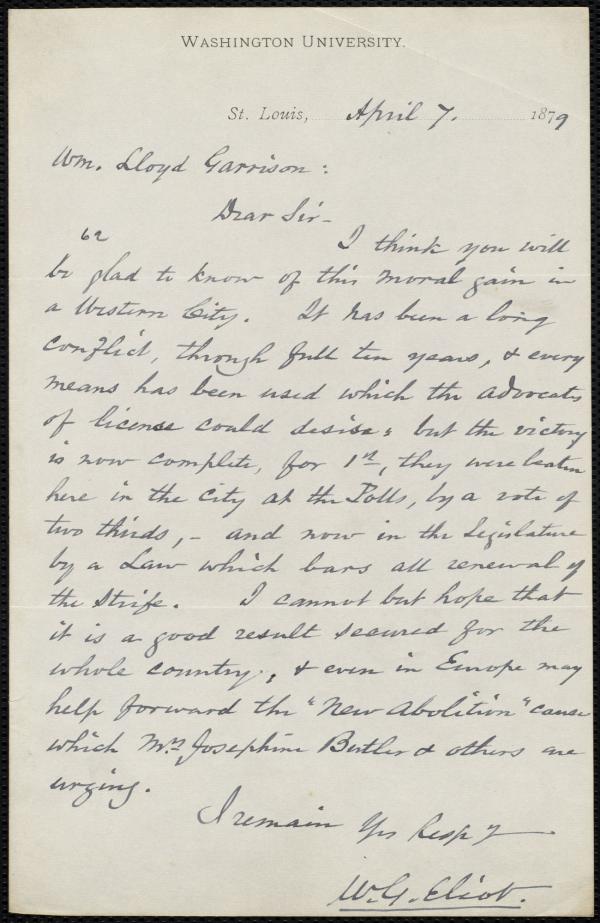 WASHINGTON UNIVERSITY.
St. Louis, April 7. 1879
Wm. Lloyd Garrison:
Dear Sir-
I think you will
be glad to know of this moral gain in
a Western City. It has been a long
conflict, through full ten years, & every
means has been used which the advocates
of license could desire; but the victory
is now complete, for 1st, they were beaten
here in the City at the Polls, by a vote of
two thirds, - and now in the Legislature
by a Law which bars all renewal of
the strife. I cannot but hope that
it is a good result secured for the
whole country, & even in Europe may
help forward the "New Abolition" cause
which Mrs Josephine Butler & others are
urging.
I remain Yrs Respy
W. G. Eliot.